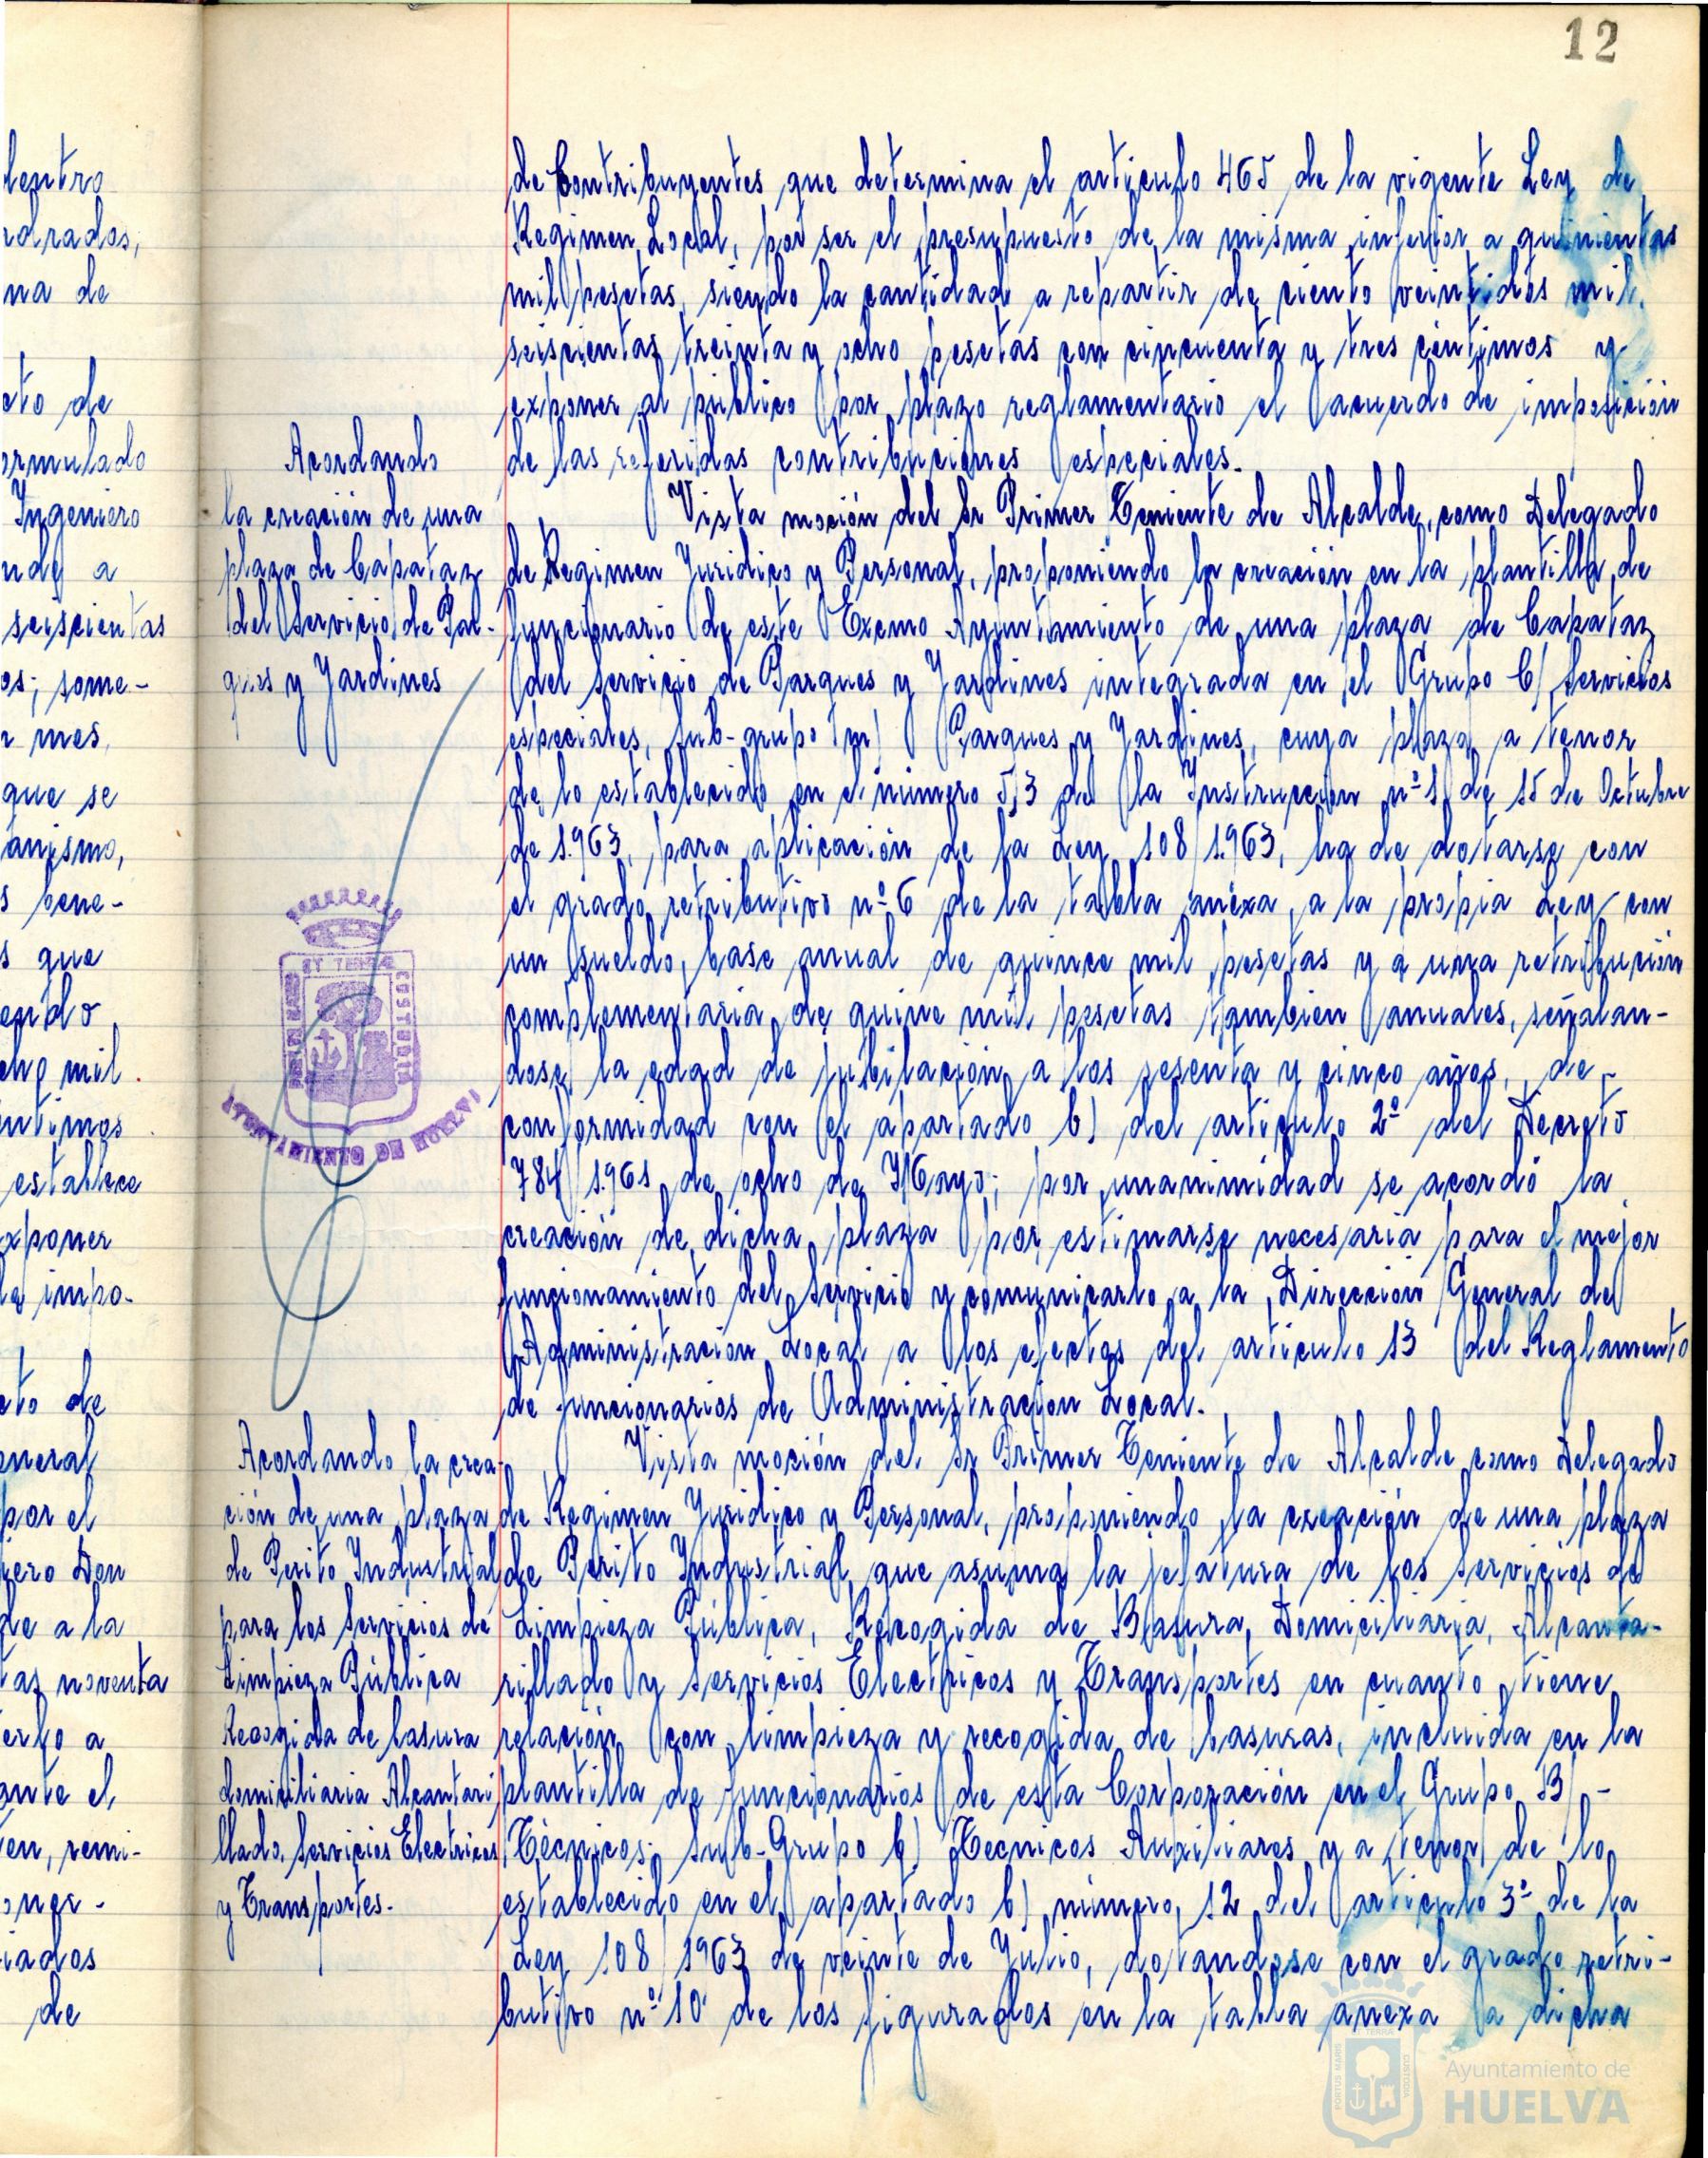 12
lentro
drados,
na de
cto de
ormulado
Ingeniero
nde a
seiscientas
os; some-
r mes,
que se
anismo,
s bene-
s que
endo
cho mil
entimos
establece
xponer
la impo-
cto de
neral
por el
iero Don
de a la
tas noventa
erlo a
ante el
en, remi-
oner-
iados
de
Acordando
la creación de una
plaza de Capataz
del Servicio de Par-
ques y Jardines
PORTUS MARIS ET TERRAE CUSTODIA
AYUNTAMIENTO DE HUELVA
Acordando la crea-
ción de una plaza
de Perito Industrial
para los Servicios de
Limpieza Pública
Recogida de basura
domiciliaria Alcantari
llado, Servicios Electricos
y Transportes.
de Contribuyentes que determina el articulo 465 de la vigente Ley de
Regimen Local, por ser el presupuesto de la misma inferior a quinientas
mil pesetas, siendo la cantidad a repartir de ciento veintidos mil
seiscientas treinta y ocho pesetas con cincuenta y tres céntimos y
exponer al público por plazo reglamentario el acuerdo de imposición
de las referidas contribuciones especiales.
Vista moción del Sr Primer Teniente de Alcalde, como Delegado
de Regimen Juridico y Personal, proponiendo la creación en la plantilla de
funcionario de este Excmo Ayuntamiento de una plaza de Capataz
del Servicio de Parques y Jardines integrada en el Grupo C) Servicios
especiales, Sub-grupo m) Parques y Jardines, cuya plaza a tenor
de lo establecido en el número 5,3 de la Instrucción nº 1 de 15 de Octubre
de 1.963, para aplicación de la Ley 108/1.963, ha de dotarse con
el grado retributivo nº 6 de la tabla anexa, a la propia Ley con
un sueldo, base anual de quince mil pesetas y a una retribución
complementaria de quine mil pesetas tambien anuales, señalan-
dose la edad de jubilación a los sesenta y cinco años, de
conformidad con el apartado b) del articulo 2º del Decreto
784/1.961 de ocho de Mayo; por unanimidad se acordó la
creación de dicha plaza por estimarse necesaria para el mejor
funcionamiento del Servicio y comunicarlo a la Dirección General de
Administración Local a los efectos del articulo 13 del Reglamento
de funcionarios de Administracion Local.
Vista moción del Sr Primer Teniente de Alcalde como Delegado
de Regimen Juridico y Personal, proponiendo la creación de una plaza
de Perito Industrial que asuma la jefatura de los servicios de
Limpieza Pública, Recogida de Basura, Domiciliaria, Alcanta-
rillado y Servicios Electricos y Transportes en cuanto tiene
relación con limpieza y recogida de basuras, incluida en la
plantilla de funcionarios de esta Corporación en el Grupo B) -
Técnicos; Sub-Grupo b) Tecnicos Auxiliares y a tenor de lo
establecido en el apartado b) número 12 del articulo 3º de la
Ley 108/1963 de veinte de Julio, dotandose con el grado retri-
butivo nº 10 de los figurados en la tabla anexa a dicha
Ayuntamiento de
HUELVA